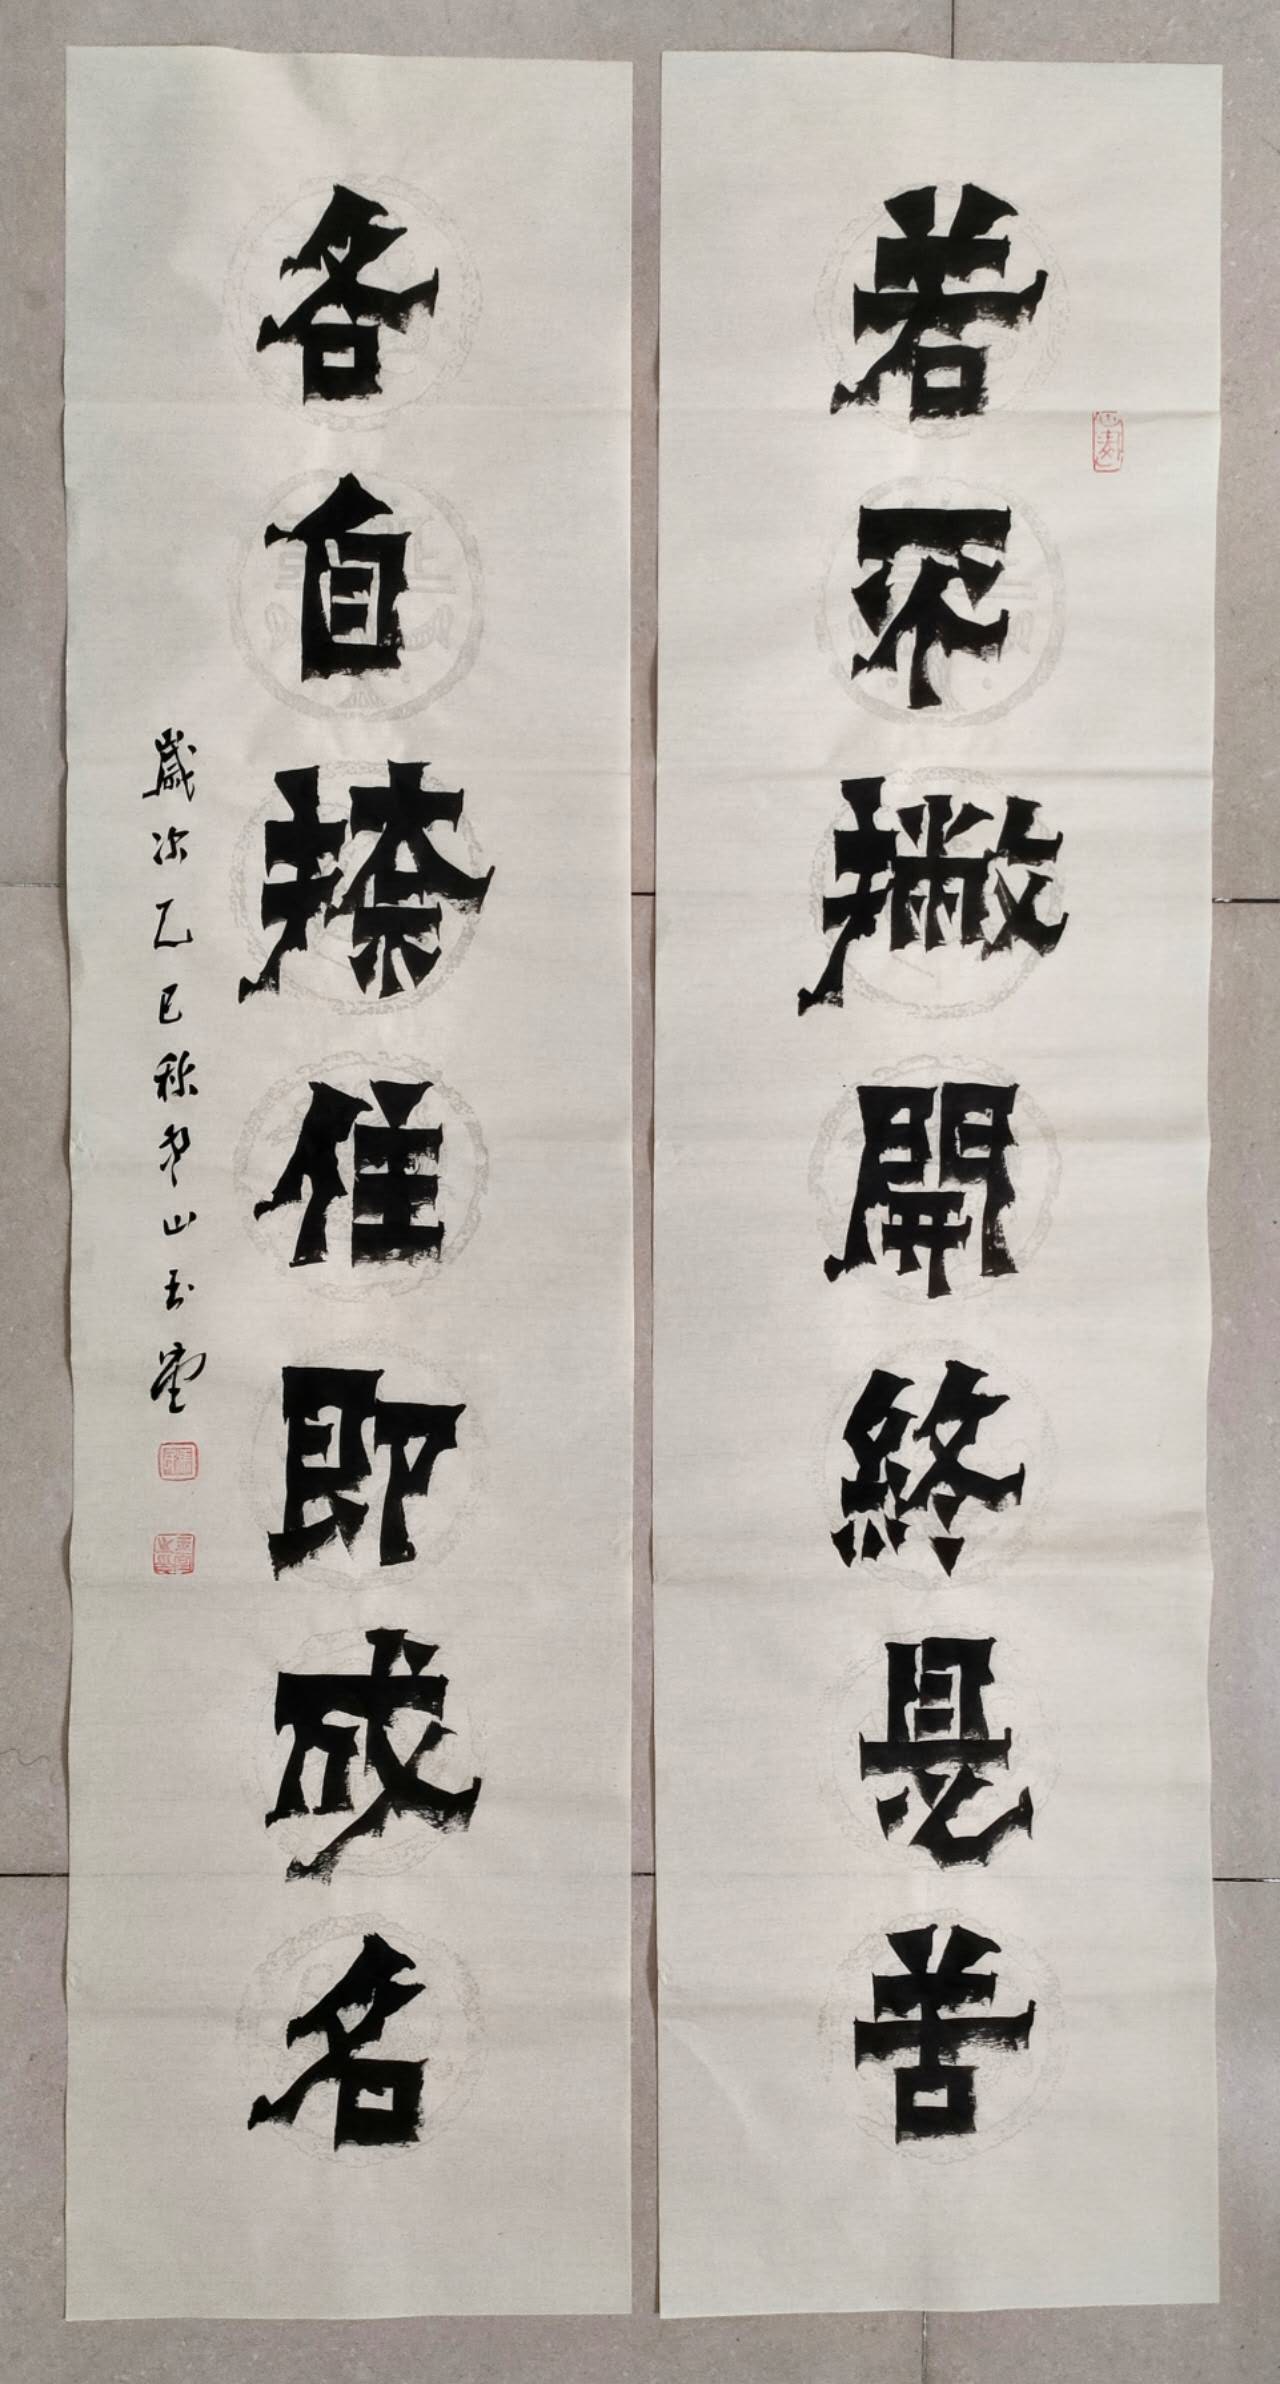 若不撇開終是苦
各自捺住即成名
歲次乙巳秋
山玉堂